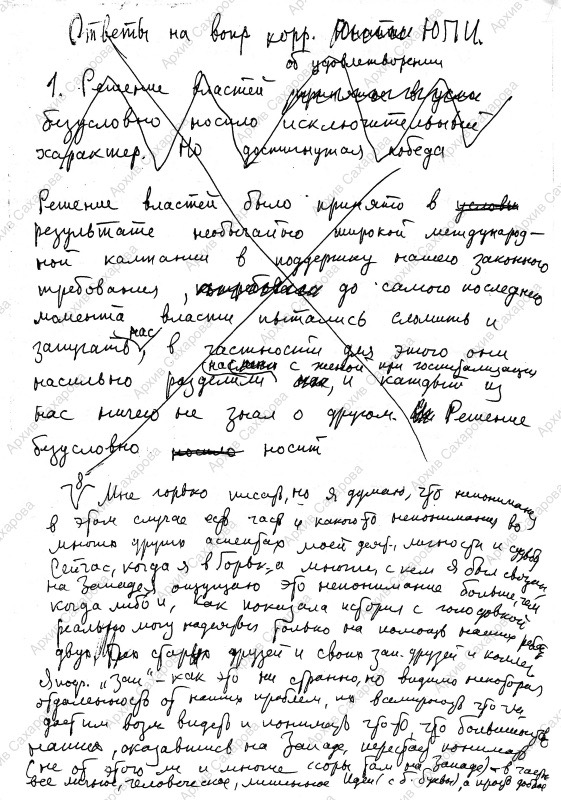 Ответы на вопр корр. ЮПИ.
об удовлетворении
1. Решение властей
безусловно носило исключительный
характер. Но достигнутая победа
Решение властей было принято в
результате необычайно широкой международ-
ной кампании в поддержку нашего законного
требования, до самого последнего
момента власти пытались сломить и
запугать нас, в частности для этого они
насильно разделили нас с женой при госпитализации, и каждый из
нас ничего не знал о другом. Решение
безусловно носит
Мне горько писать, но я думаю, что непонимание
в этом случае есть часть и какого-то непонимания во
многих других аспектах моей деят., личности и судьбы
Сейчас, когда я в Горьк., а многие, с кем я был связан
на Западе, я ощущаю это непонимание больше, чем
когда либо и, как показала история с голодовкой
реально могу надеяться только на помощь наших
двух, трех старых друзей и своих зап. друзей и коллег
"Зап" - как это ни странно, но видимо некоторая
отдаленность от наших проблем, их всемирность что ли
дает им возм видеть и понимать что-то, что большинство
наших, оказавшись на Западе, перестает понимать
(не от этого ли и многие ссоры там на Западе) - в частн
все личное, человеческое, лишенное Идеи (с б. буквы), а
Архив Сахарова